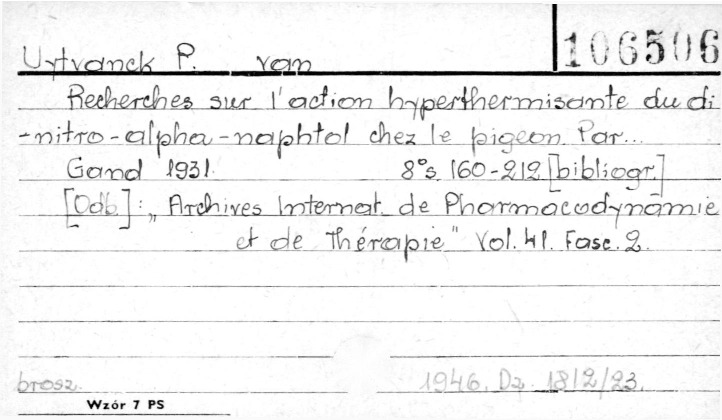 106506
Uytvanck P. van
Recherches sur l'action hyperthermisante du di
-nitro-alpha-naphtol chez le pigeon. Par...
Gand 1931. 8° s. 160-212 [bibliogr.]
[Odb.]: „Archives Internat. de Pharmacodynamie
et de Thérapie" Vol. 41. Fasc. 2.
brosz. 1946. Dz. 1812/23.
Wzór 7 PS